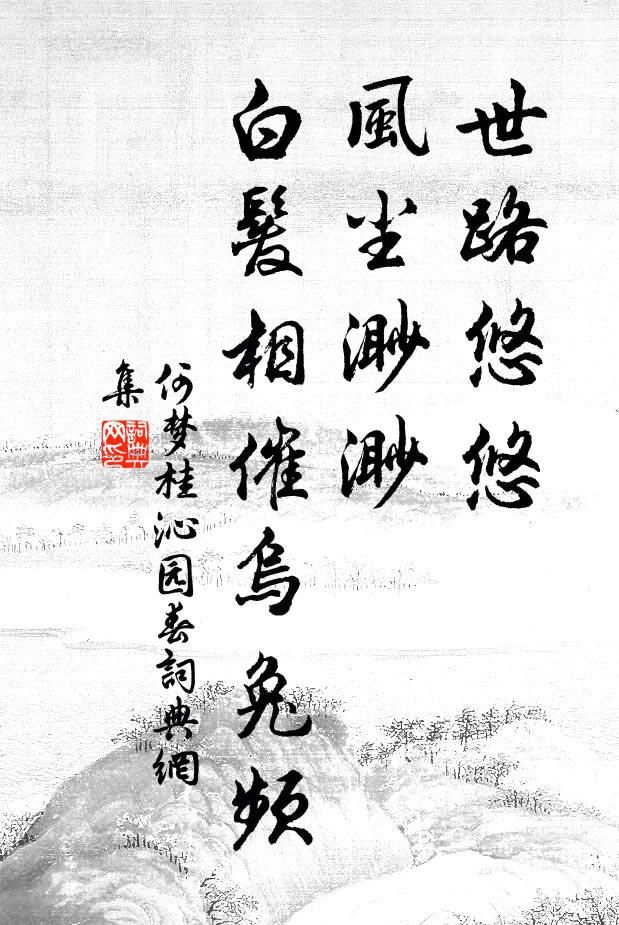 世路悠悠
風尘渺渺
白髮相催烏兔頻
何梦桂沁园春詞典網
集
詞典网